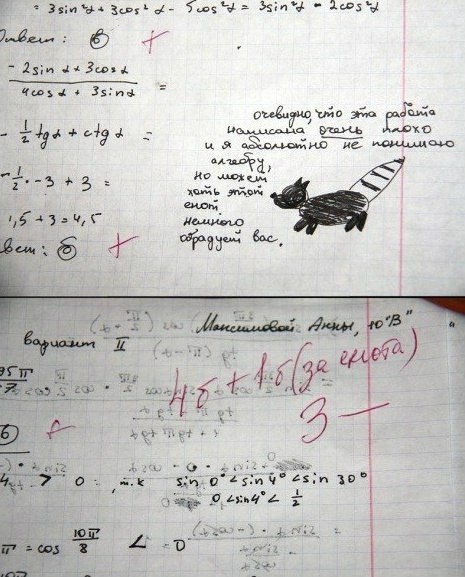 = 3sin²α + 3cos²α - 5cos²α = 3sin²α - 2cos²α
Ответ: в +
- 2sin α + 3cos α
4cos α + 3sin α =
- 1/2 tg α + ctg α =
- 1/2 · -3 + 3 =
1,5 + 3 = 4,5
вет: б +
очевидно, что эта работа
написана очень плохо
и я абсолютно не понимаю
алгебру,
но может
хоть этот
енот
немного
обрадует вас.
Максимовой Анны, 10 "В"
вариант II
4б + 1б (за енота)
3 —
б
> 0 , т.к sin 0° < sin 4° < sin 30°
0 < sin 4° < 1/2
π = cos 10π/8 < 0